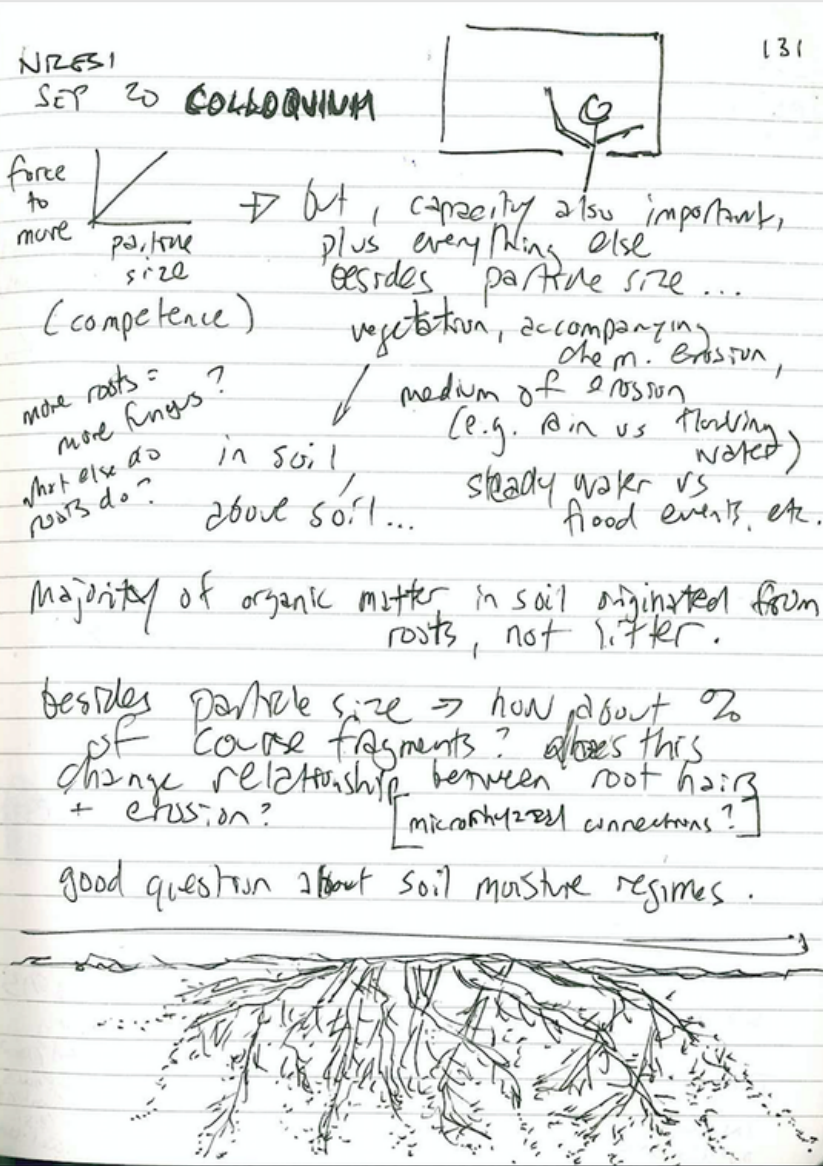 131
NRESI
SEP 20 COLLOQUIUM
force
to
move
particle
size
(competence)
→ but, capacity also important,
plus everything else
besides particle size...
vegetation, accompanying
chem. erosion,
medium of erosion
(e.g. rain vs flowing
water)
steady water vs
flood events, etc.
more roots =
more fungus?
what else do
roots do?
in soil
above soil...
Majority of organic matter in soil originated from
roots, not litter.
besides particle size → how about %
of course fragments? does this
change relationship between root hairs
+ erosion?
[microrhyzzal connections?]
good question about soil moisture regimes.